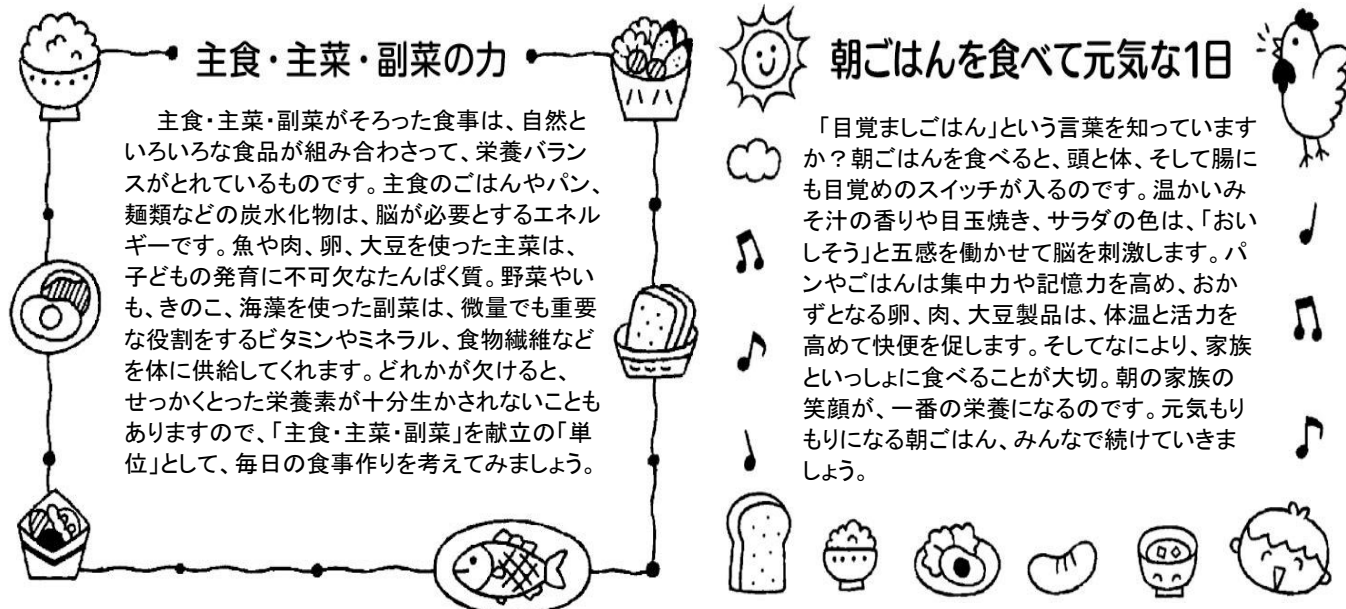 主食・主菜・副菜の力
主食・主菜・副菜がそろった食事は、自然と
いろいろな食品が組み合わさって、栄養バラン
スがとれているものです。主食のごはんやパン、
麺類などの炭水化物は、脳が必要とするエネル
ギーです。魚や肉、卵、大豆を使った主菜は、
子どもの発育に不可欠なたんぱく質。野菜やい
も、きのこ、海藻を使った副菜は、微量でも重要
な役割をするビタミンやミネラル、食物繊維など
を体に供給してくれます。どれかが欠けると、
せっかくとった栄養素が十分生かされないことも
ありますので、「主食・主菜・副菜」を献立の「単
位」として、毎日の食事作りを考えてみましょう。
朝ごはんを食べて元気な1日
「目覚ましごはん」という言葉を知っています
か？朝ごはんを食べると、頭と体、そして腸に
も目覚めのスイッチが入るのです。温かいみ
そ汁の香りや目玉焼き、サラダの色は、「おい
しそう」と五感を働かせて脳を刺激します。パ
ンやごはんは集中力や記憶力を高め、おか
ずとなる卵、肉、大豆製品は、体温と活力を
高めて快便を促します。そしてなにより、家族
といっしょに食べることが大切。朝の家族の
笑顔が、一番の栄養になるのです。元気もり
もりになる朝ごはん、みんなで続けていきま
しょう。